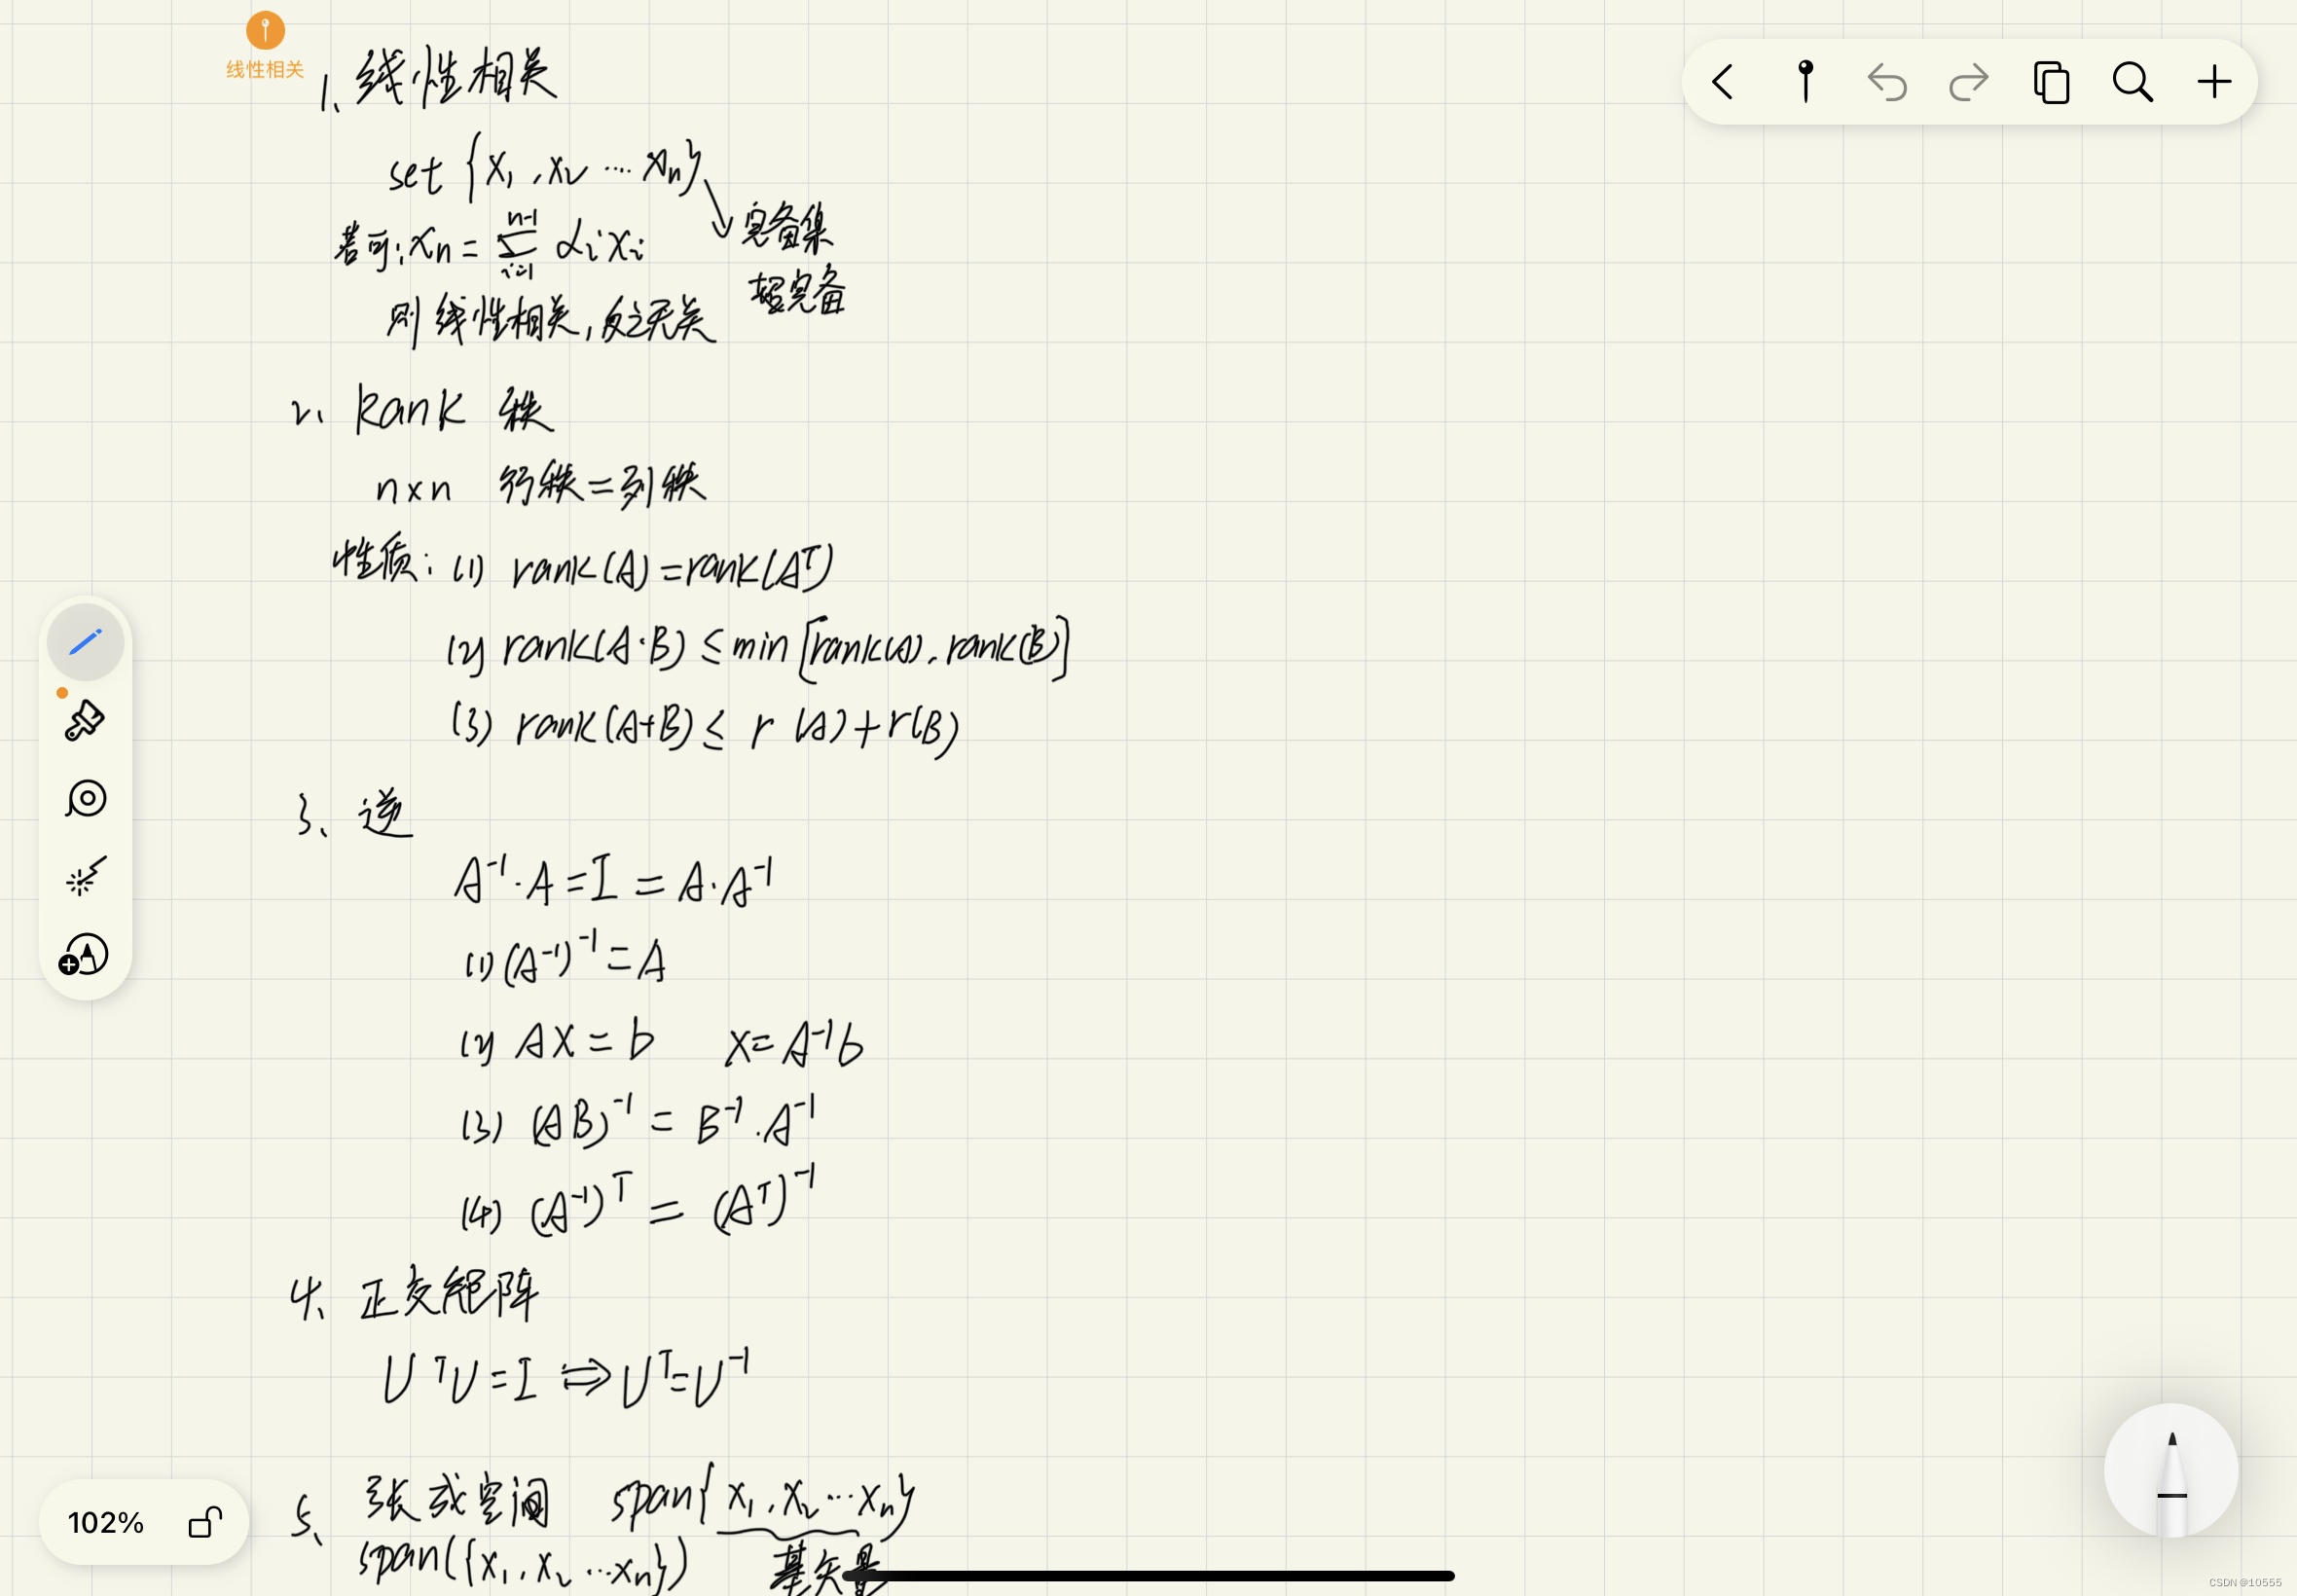 线性相关
1、线性相关
set {x₁, x₂ ... xₙ}
完备集
若可: xₙ = Σᵢ₌₁ⁿ⁻¹ αᵢ xᵢ
超完备
则线性相关, 反之无关
2、Rank 秩
n×n 行秩=列秩
性质: (1) rank(A) = rank(Aᵀ)
(2) rank(A·B) ≤ min[rank(A), rank(B)]
(3) rank(A+B) ≤ r(A) + r(B)
3、逆
A⁻¹·A = I = A·A⁻¹
(1) (A⁻¹)⁻¹ = A
(2) AX = b x = A⁻¹b
(3) (AB)⁻¹ = B⁻¹·A⁻¹
(4) (A⁻¹)ᵀ = (Aᵀ)⁻¹
4、正交矩阵
UᵀU = I ⇔ Uᵀ = U⁻¹
5、张成空间 span{x₁, x₂ ... xₙ}
span({x₁, x₂ ... xₙ}) 基矢量
102%
CSDN @10555